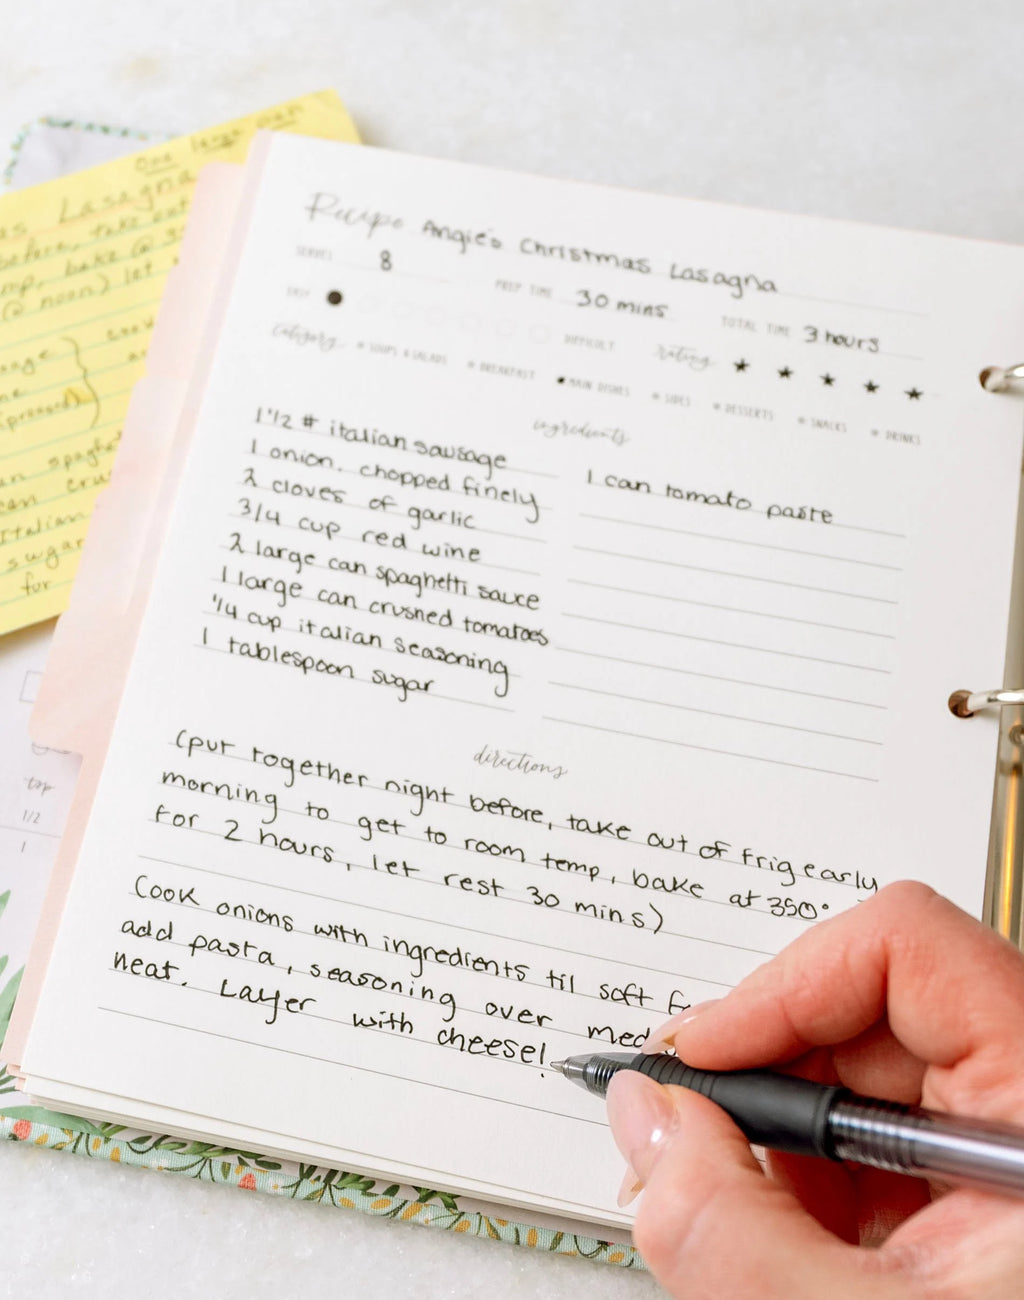 One large pan
as Lasagna
before, take out
mp, bake @ 3
@ noon) let
age
(pressed)
an spaghe
can crus
Italian
sugar
for
top
1/2
1
Recipe Angie's Christmas Lasagna
SERVES 8 PREP TIME 30 mins TOTAL TIME 3 hours
EASY DIFFICULT rating ★ ★ ★ ★ ★
category SOUPS & SALADS BREAKFAST MAIN DISHES SIDES DESSERTS SNACKS DRINKS
ingredients
1 1/2 # italian sausage
1 onion. chopped finely
2 cloves of garlic
3/4 cup red wine
2 large can spaghetti sauce
1 large can crushed tomatoes
1/4 cup italian seasoning
1 tablespoon sugar
1 can tomato paste
directions
(put together night before, take out of frig early
morning to get to room temp, bake at 350°
for 2 hours, let rest 30 mins)
Cook onions with ingredients til soft
add pasta, seasoning over med
heat. Layer with cheese!